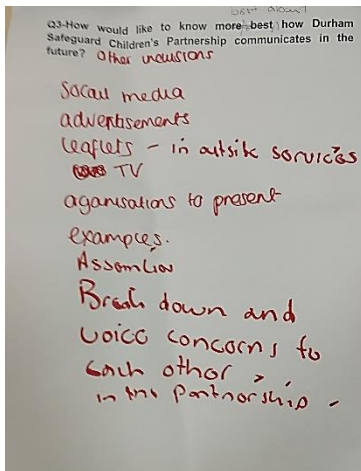 best about
Q3-How would like to know more best how Durham
Safeguard Children's Partnership communicates in the
future? Other inclusions
Socail media
advertisements
leaflets - in outsik sorvices
TV
aganisations to present
examples.
Assemblies
Break down and
voice concerns to
each other
in the partnorship -